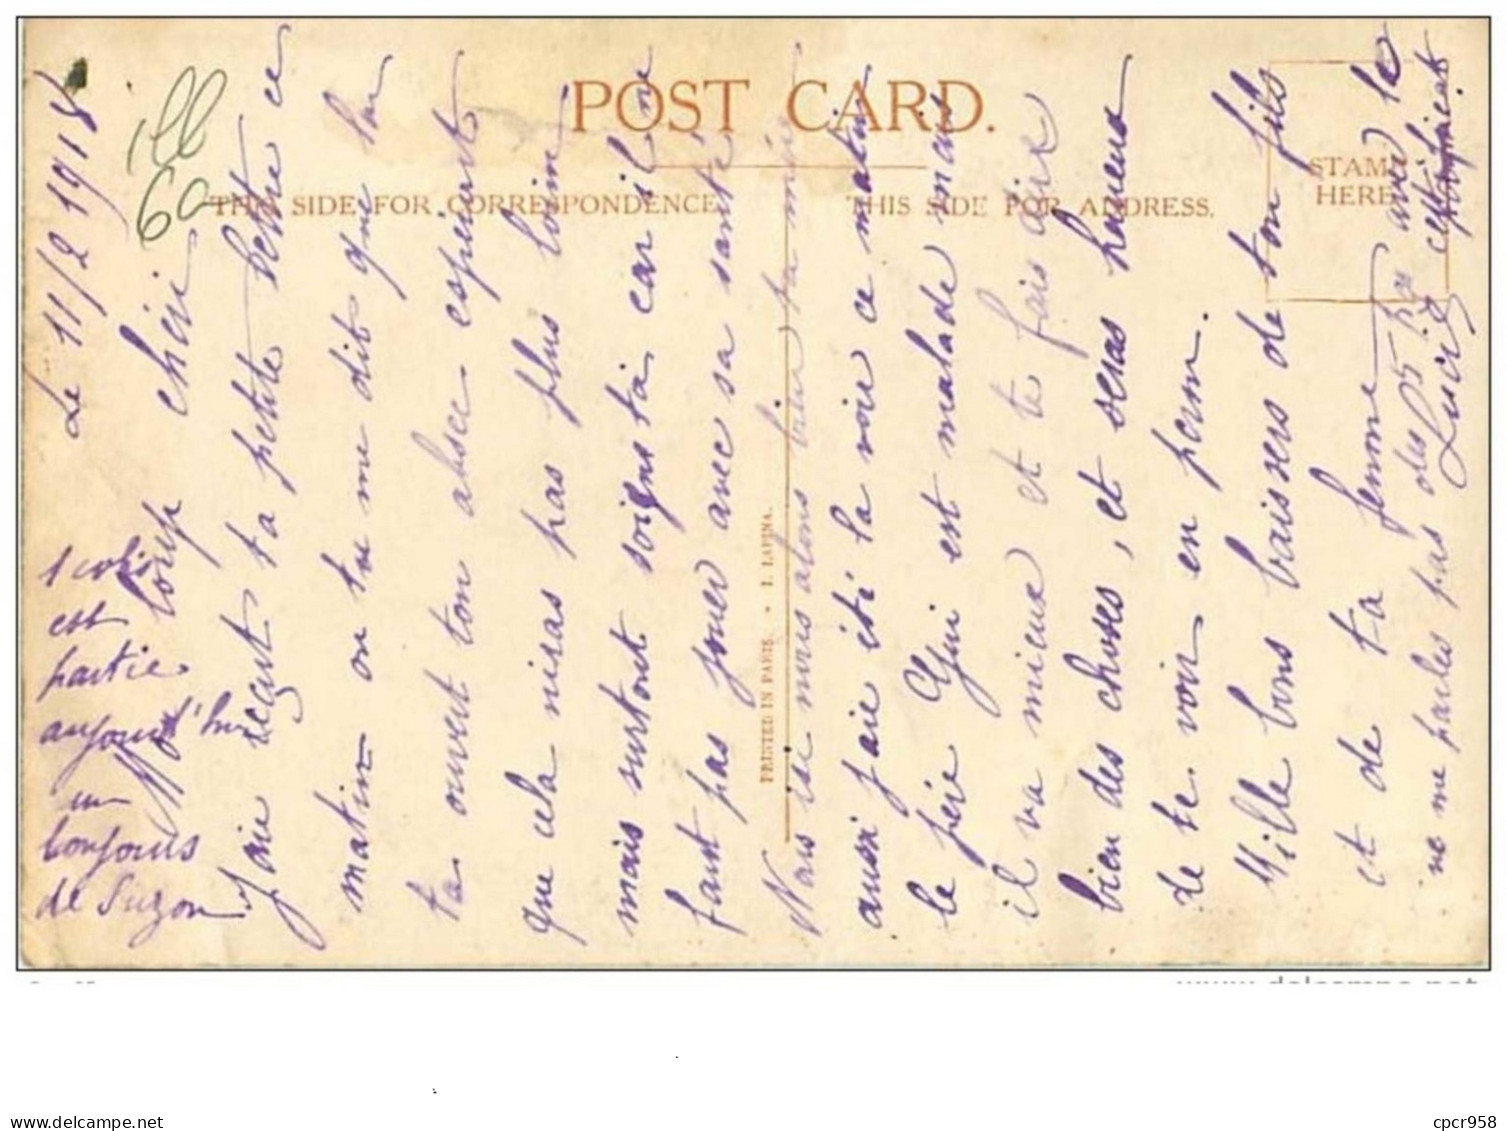 POST CARD.
THIS SIDE FOR CORRESPONDENCE.
THIS SIDE FOR ADDRESS.
STAMP
HERE
PRINTED IN PARIS. • I. LAPINA.
ill
60
Le 11/2 1918
Mon loup chéri
J'aie reçut ta petite lettre ce
matin on tu me dit que l'on
ta ouvert ton absec esperont
que cela niras pas plus loin
mais surtout soigns ta car il ne
faut pas jouer avec sa santé
Nais ise nous alons bien ta mère
aussi j'aie été la voir ce matin
le père Gui est malade mais
il va mieux et te fais dire
bien des choses, et seras heureux
de te voir en perm.
Mille bons baissers de ton fils
et de ta femme
Lucie
ne me parles pas des 95 avec le
certificat
1 colis
est
partie
aujourd'hui
un
bonjours
de Suzon
www.delcampe.net
delcampe.net
cpcr958